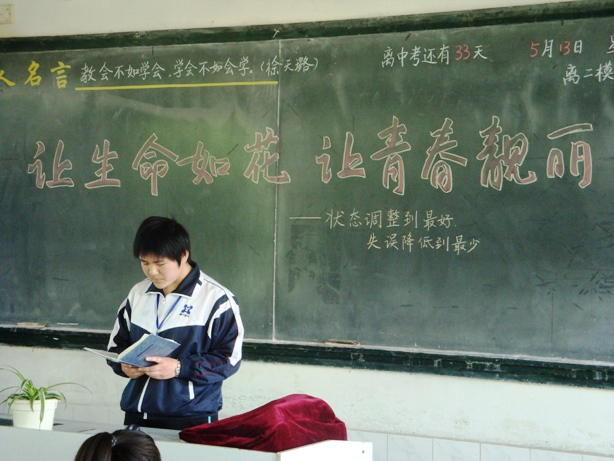 人名言 教会不如学会，学会不如会学。（徐天鹏）
离中考还有33天 5月13日
离二模
让生命如花 让青春靓丽
——状态调整到最好
失误降低到最少